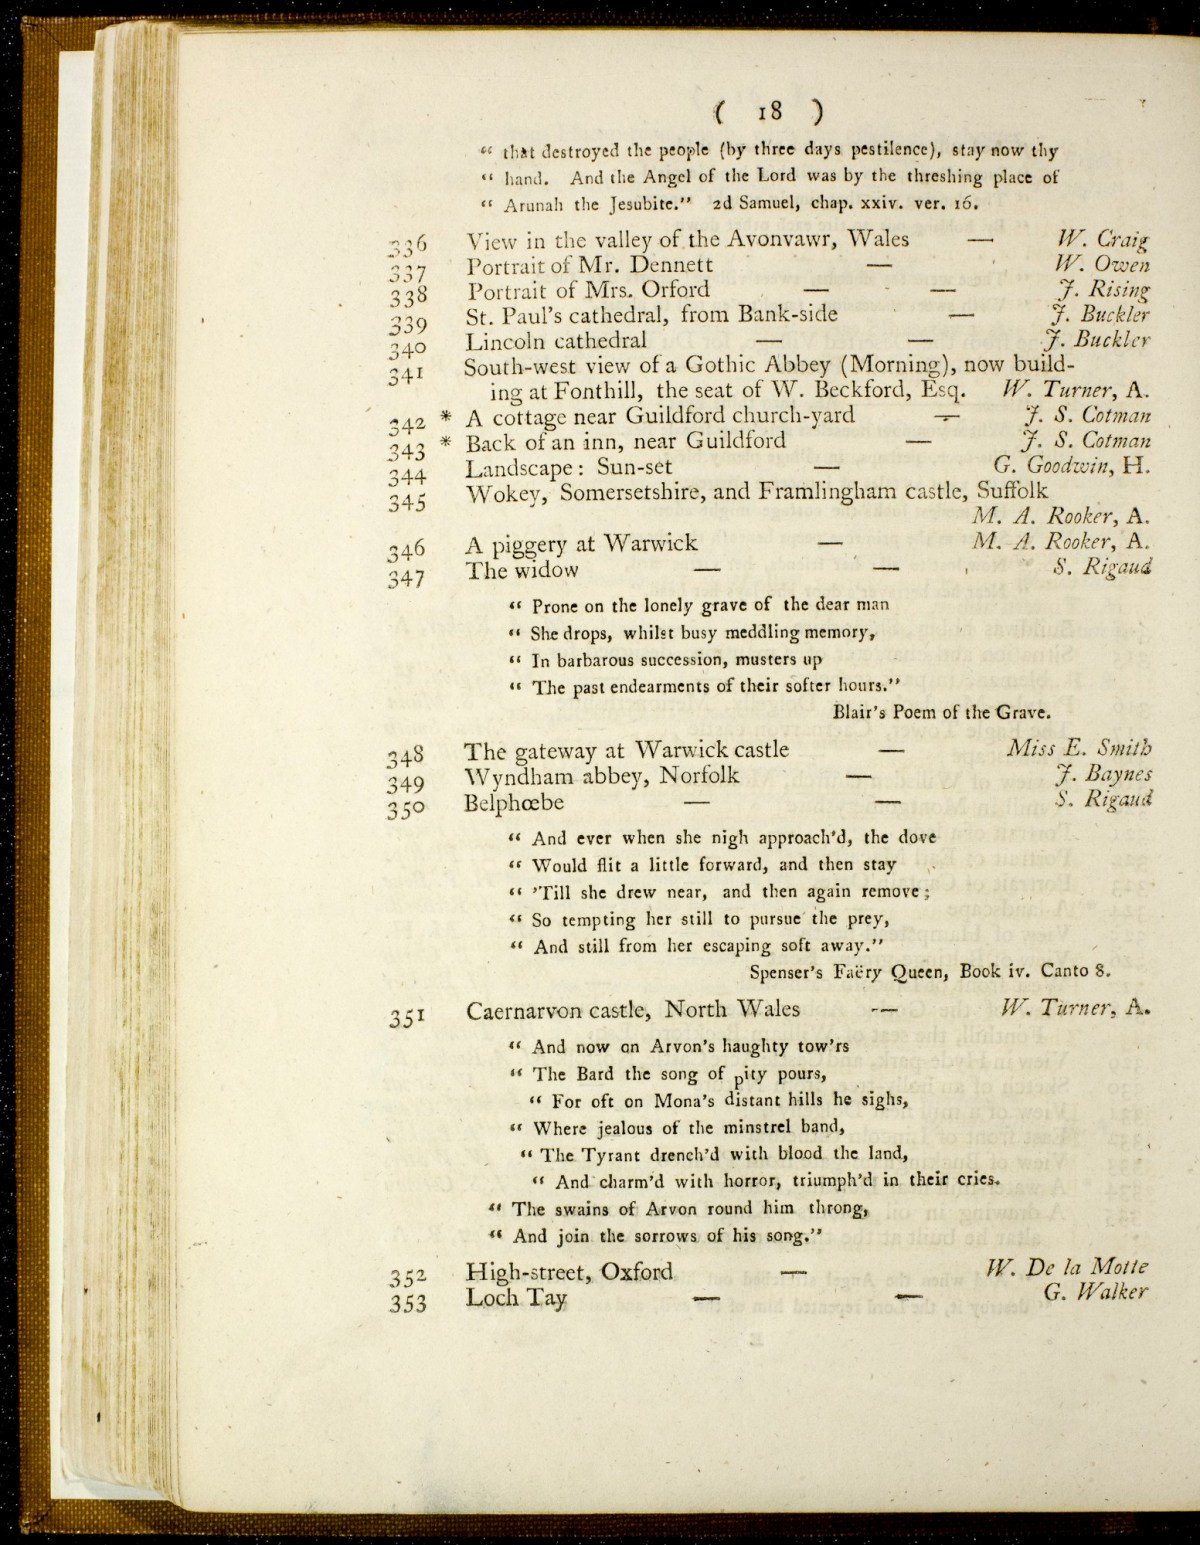 ( 18 )
“ that destroyed the people (by three days pestilence), stay now thy
“ hand. And the Angel of the Lord was by the threshing place of
“ Arunah the Jesubite.” 2d Samuel, chap. xxiv. ver. 16.
336 View in the valley of the Avonvawr, Wales — W. Craig
337 Portrait of Mr. Dennett — W. Owen
338 Portrait of Mrs. Orford — — J. Rising
339 St. Paul’s cathedral, from Bank-side — J. Buckler
340 Lincoln cathedral — — J. Buckler
341 South-west view of a Gothic Abbey (Morning), now build-
ing at Fonthill, the seat of W. Beckford, Esq. W. Turner, A.
342 * A cottage near Guildford church-yard — J. S. Cotman
343 * Back of an inn, near Guildford — J. S. Cotman
344 Landscape: Sun-set — G. Goodwin, H.
345 Wokey, Somersetshire, and Framlingham castle, Suffolk
M. A. Rooker, A.
346 A piggery at Warwick — M. A. Rooker, A.
347 The widow — — S. Rigaud
“ Prone on the lonely grave of the dear man
“ She drops, whilst busy meddling memory,
“ In barbarous succession, musters up
“ The past endearments of their softer hours.”
Blair’s Poem of the Grave.
348 The gateway at Warwick castle — Miss E. Smith
349 Wyndham abbey, Norfolk — J. Baynes
350 Belphœbe — — S. Rigaud
“ And ever when she nigh approach’d, the dove
“ Would flit a little forward, and then stay
“ ’Till she drew near, and then again remove;
“ So tempting her still to pursue the prey,
“ And still from her escaping soft away.”
Spenser’s Faëry Queen, Book iv. Canto 8.
351 Caernarvon castle, North Wales — W. Turner, A.
“ And now on Arvon’s haughty tow’rs
“ The Bard the song of pity pours,
“ For oft on Mona’s distant hills he sighs,
“ Where jealous of the minstrel band,
“ The Tyrant drench’d with blood the land,
“ And charm’d with horror, triumph’d in their cries.
“ The swains of Arvon round him throng,
“ And join the sorrows of his song.”
352 High-street, Oxford — W. De la Motte
353 Loch Tay — — G. Walker